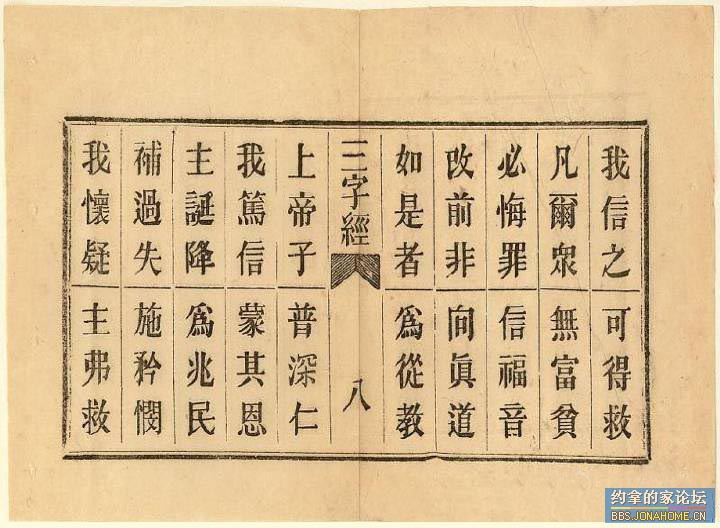 我信之 可得救
凡爾眾 無富貧
必悔罪 信福音
改前非 向眞道
如是者 爲從教
三字經 八
上帝子 普深仁
我篤信 蒙其恩
主誕降 爲兆民
補過失 施矜憫
我懷疑 主弗救
约拿的家论坛
BBS.JONAHOME.CN